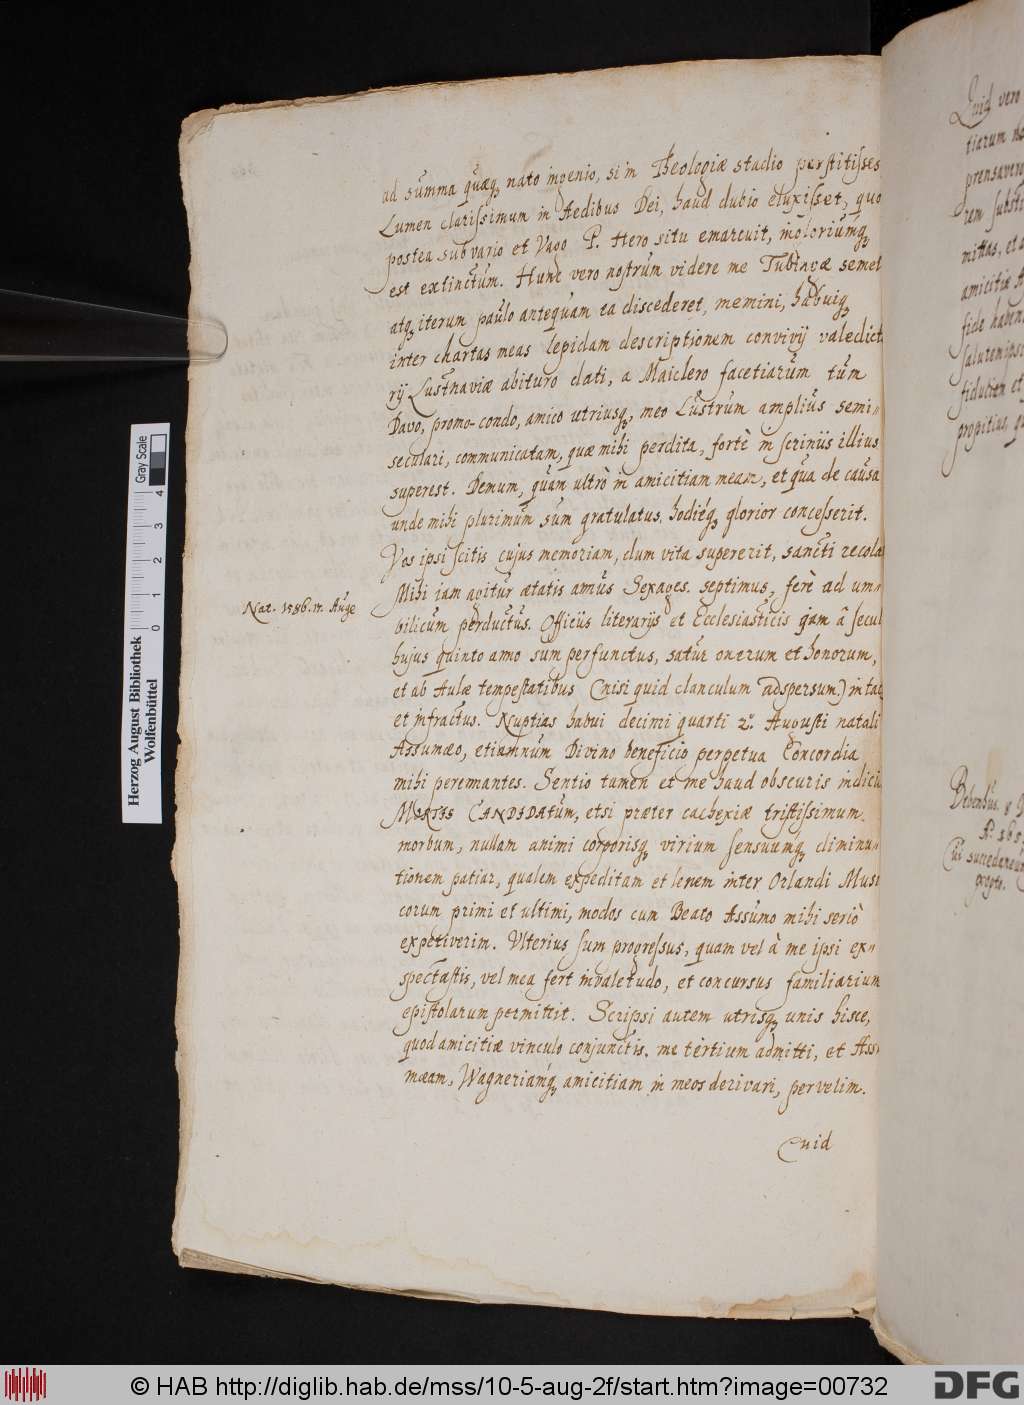 ad summa quæq; nato ingenio, si in Theologiæ stadio perstitisses
Lumen clarissimum in Aedibus Dei, haud dubio eluxisset, quo
postea sub vario et Vago P. Hero situ emarcuit, ingloriumq;
est extinctum. Hunc vero nostrum videre me Tubingæ semel
atq; iterum paulo antequam ea discederet, memini, habuiq;
inter chartas meas lepidam descriptionem convivij valedicto
rij Lustnaviæ abituro dati, a Maiclero facetiarum tum
Davo, promo-condo, amico utriusq; meo Lustrum amplius semi-
seculari, communicatam, quæ mihi perdita, fortè in scriniis illius
superest. Demum, quam ultrò in amicitiam meam, et qua de causa
unde mihi plurimum sum gratulatus, hodiéq; glorior concesserit.
Vos ipsi scitis cujus memoriam, dum vita supererit, sancti recola
Mihi iam agitur ætatis annus Sexages. septimus, ferè ad um-
Nat. 1586. 17. Aug.
bilicum perductus. Officiis literarijs et Ecclesiasticis jam â secul
hujus quinto anno sum perfunctus, satur onerum et honorum,
et ab Aulæ tempestatibus (nisi quid clanculum adspersum) intac
et infractus. Nuptias habui decimi quarti 2. Augusti natali
Assumæo, etiamnum Divino beneficio perpetua Concordia
mihi peremnantes. Sentio tamen et me haud obscuris indicii
MORTIS CANDIDATum, etsi præter cachexiæ tristissimum
morbum, nullam animi corporisq; virium sensuumq; diminu-
tionem patiar, qualem expeditam et lenem inter Orlandi Musi
corum primi et ultimi, modos cum Beato Assumo mihi seriò
expetiverim. Ulterius sum progressus, quam vel à me ipsi ex-
spectastis, vel mea fert invaletudo, et concursus familiarium
epistolarum permittit. Scripsi autem utrisq; unis hisce,
quod amicitiæ vinculo conjunctis, me tertium admitti, et Ass
mæam, Wagneriamq; amicitiam in meos derivari, pervelim.
Quid
Quid vero
tiarum
prensavero
rem substi
mittas, et
amicitiæ
fido haben
salutem ips
fiduciam et
propitius, qu
Debendus.
succedere
Herzog August Bibliothek
Wolfenbüttel
0 1 2 3 4 Gray Scale
© HAB http://diglib.hab.de/mss/10-5-aug-2f/start.htm?image=00732
DFG